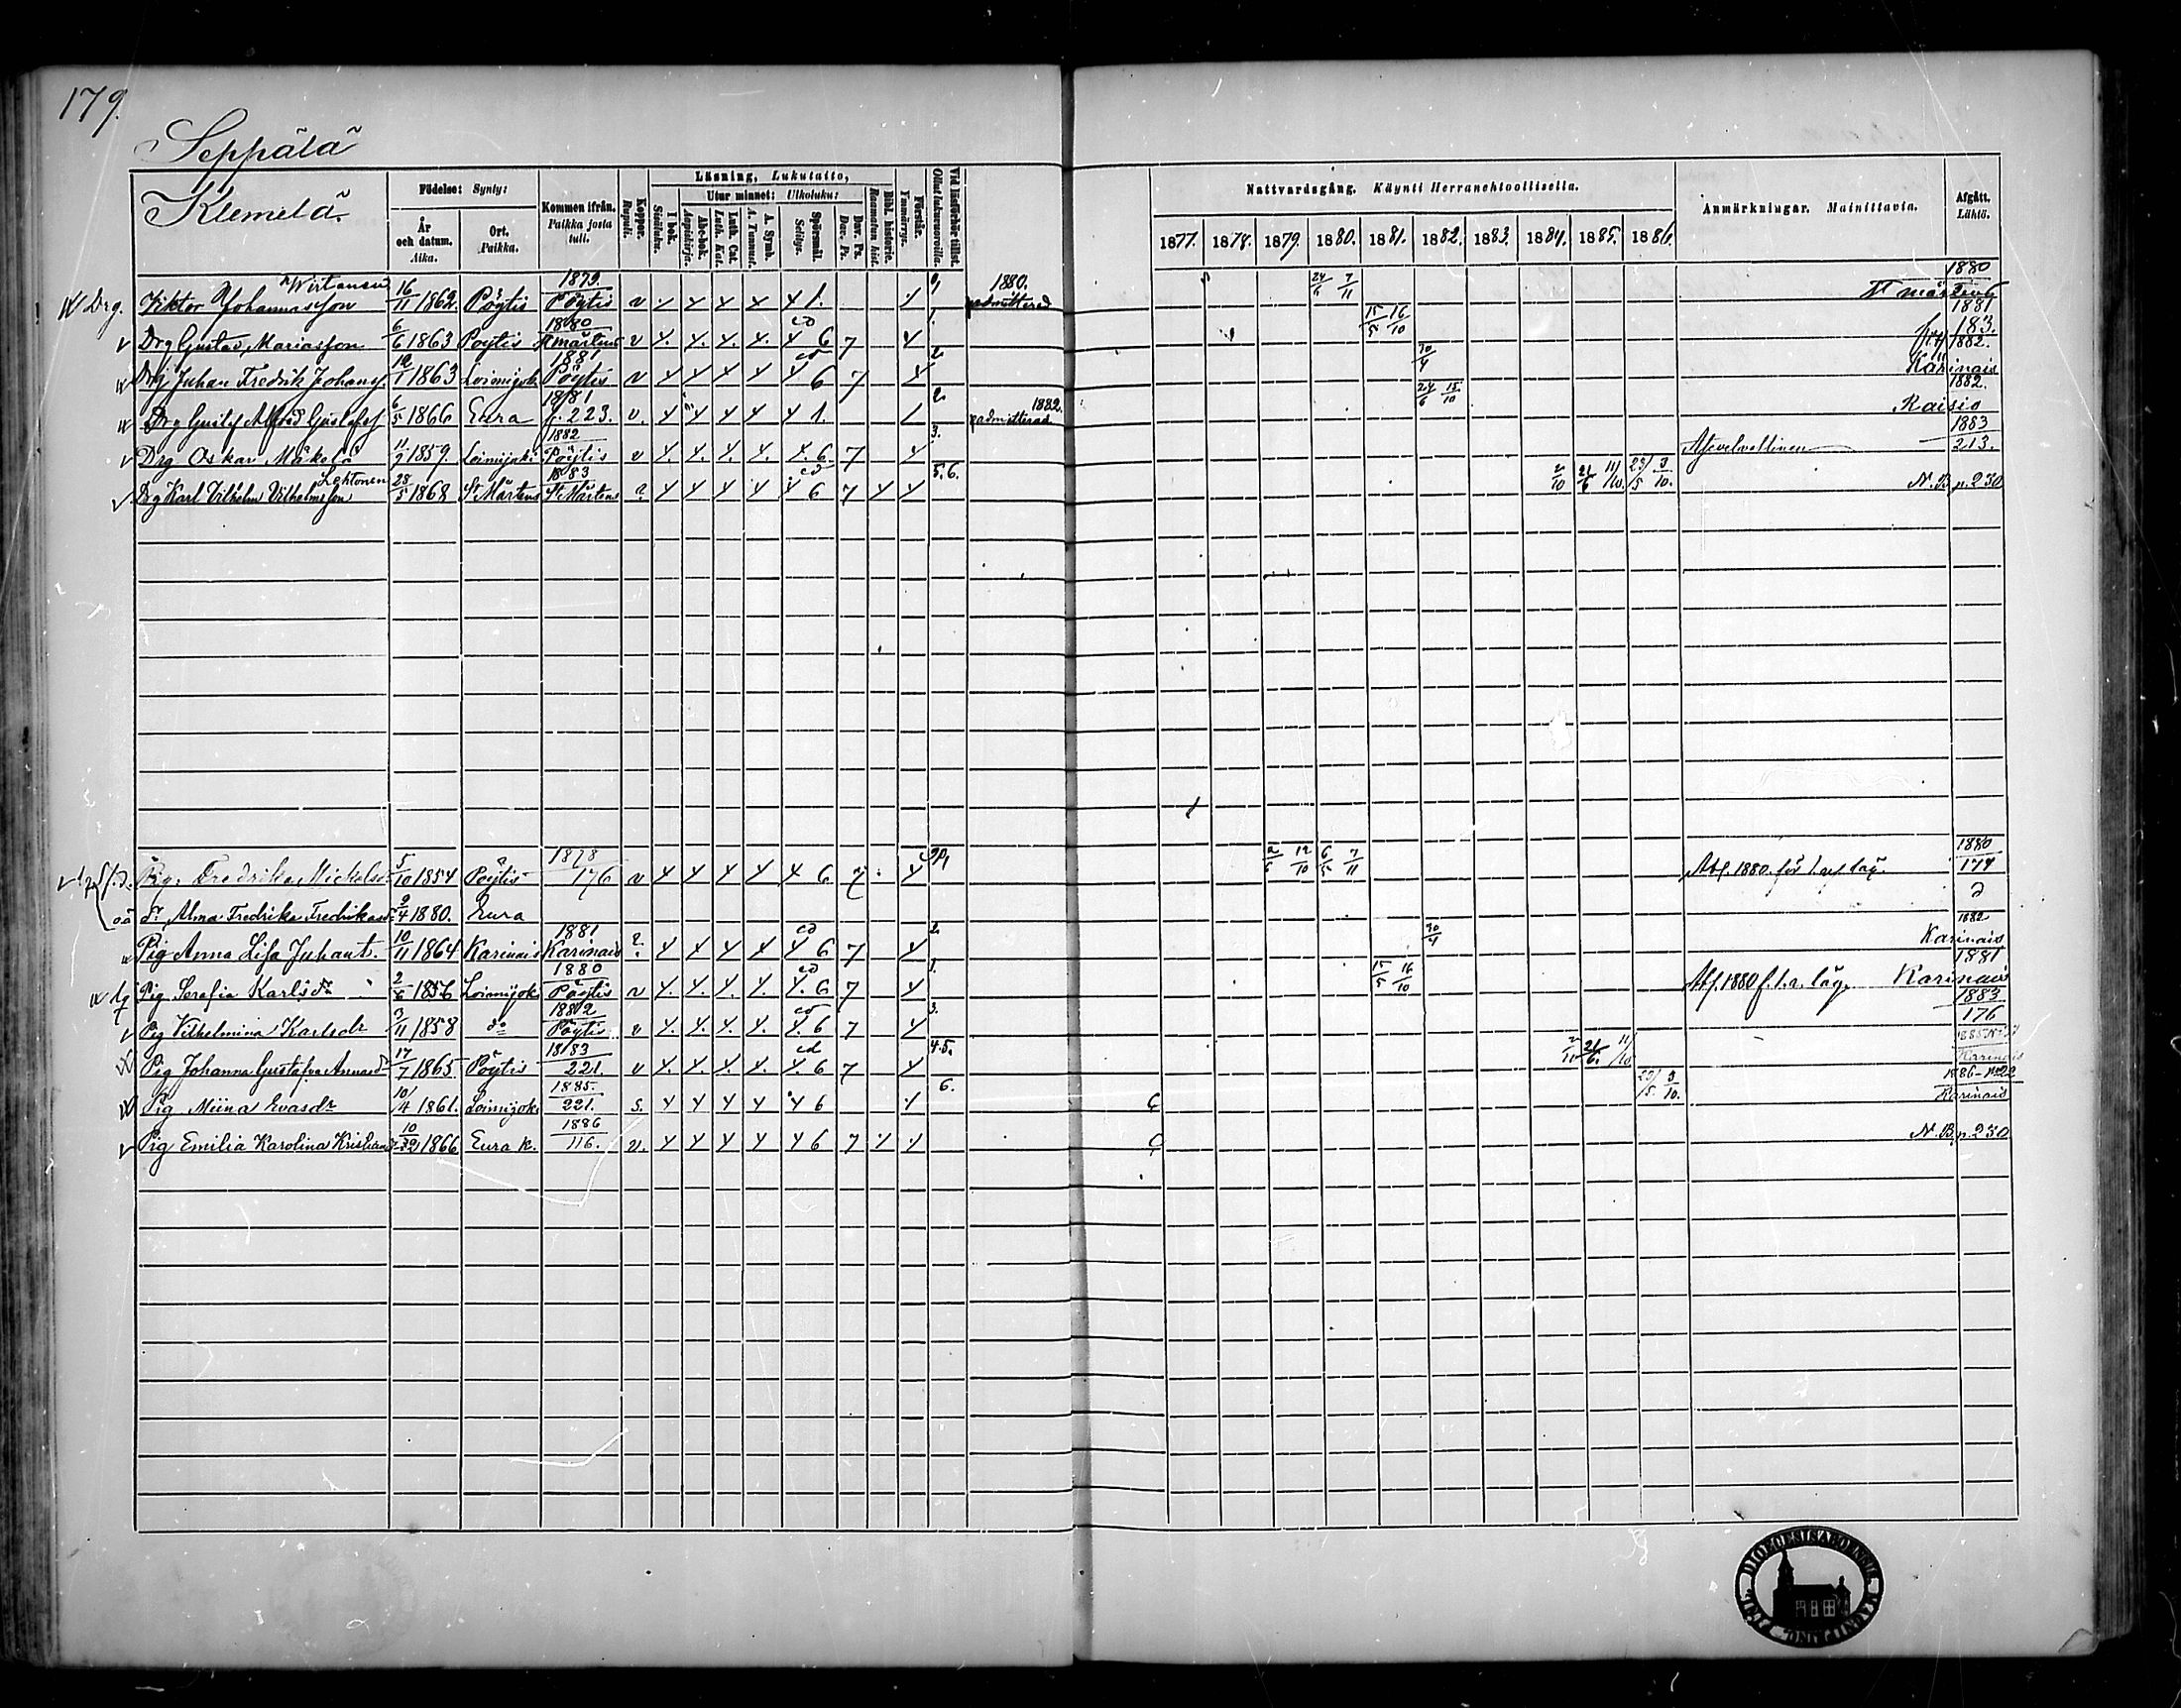 179.
Seppälä
Klemelä.
Födelse: Synty:
År och datum. Aika.
Ort. Paikka.
Kommen ifrån. Paikka josta tuli.
Koppor. Rupuli.
Läsning, Lukutaito,
I bok. Sisäluku.
Utur minnet: Ulkoluku:
Abc-bok. Aapiskirja.
Luth. Cat. Luth. Kat.
A. Symb. A. Tunnust.
Spörsmål. Selitys.
Dav. Ps. Dav. Ps.
Bibl. historie. Raamatun hist.
Förstår. Ymmärrys.
Vid läsförhör tillst. Ollut lukuvuoroilla.
Nattvardsgång. Käynti Herranehtoollisella.
1877. 1878. 1879. 1880. 1881. 1882. 1883. 1884. 1885. 1886.
Anmärkningar. Mainittavia.
Afgått. Lähtö.
Drg. Viktor Johannesson Wirtanen 16/11 1862. Pöytis 1879 Pöytis v 1. 1880. admitterad 24/6 7/11 1880 St mårtens
v Drg Gustaf Mariasson 6/6 1863 Pöytis 1880 St mårtens v 6 7 1. 15/5 16/10 1881 183.
Drg Juhan Fredrik Johans. 1863 Loimijoki 1881 Pöytis v 6 7 2. 30/4 1882. Karinais
Drg Gustaf Alfred Gustafss 6/5 1866 Eura 1881 p. 223. v. 1. 2. 1882. admitterad 24/6 15/10 1882. Raisio
v Drg Oskar Mäkelä 11/7 1859. Loimijoki 1882 Pöytis v 6 7 3. Asevelvollinen 1883 213.
v Drg Karl Vilhelm Vilhelmsson Lehtonen 28/5 1868 St Mårtens 1883 St Mårtens ? 6 7 5.6. 2/10 21/6 11/10. 23/5 3/10. N.B. p. 230
Pig. Fredrika Mickelsd. 5/10 1854 Pöytis 1878 176 v 6 7 2/6 12/10 6/5 7/11 Abs. 1880. för 1. 1880 177
oä dr. Alma Fredrika Fredrikasd. 9/4 1880. Eura
Pig Anna Lisa Juhant. 10/11 1864 Karinais 1881 Karinais ? 6 7 2. 30/4 1882 Karinais
Pig. Serafia Karlsdr 2/6 1856 Loimijoki 1880 Pöytis v 6 7 1. 15/5 16/10 Abs. 1880 f. 1. 1881 Karinais
v Pig Vilhelmina Karlsdr 3/11 1858 do 1882 Pöytis v 6 7 3. 1883 176
Pig Johanna Gustafva Annasdr 17/7 1865. Pöytis 1883 221. v 6 7 4.5. 21/6. 11/10 1885 Karinais
Pig Miina Evasdr 10/4 1861. Loimijoki 1885. 221. s. 6 6. 23/5. 3/10. 1886 Karinais
v Pig Emilia Karolina Kristiansdr 1866 Eura k. 1886 116. v. 6 7 N.B. p. 230